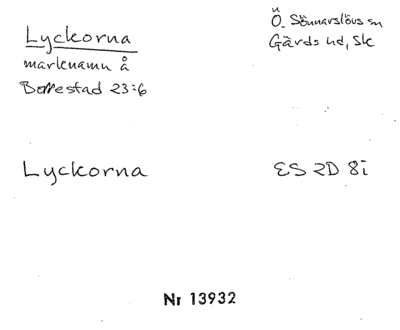 Lyckorna
marknamn å
Borrestad 23:6
Ö. Sönnarslövs sn
Gärds hd, Sk
Lyckorna
ES 2D 8i
Nr 13932